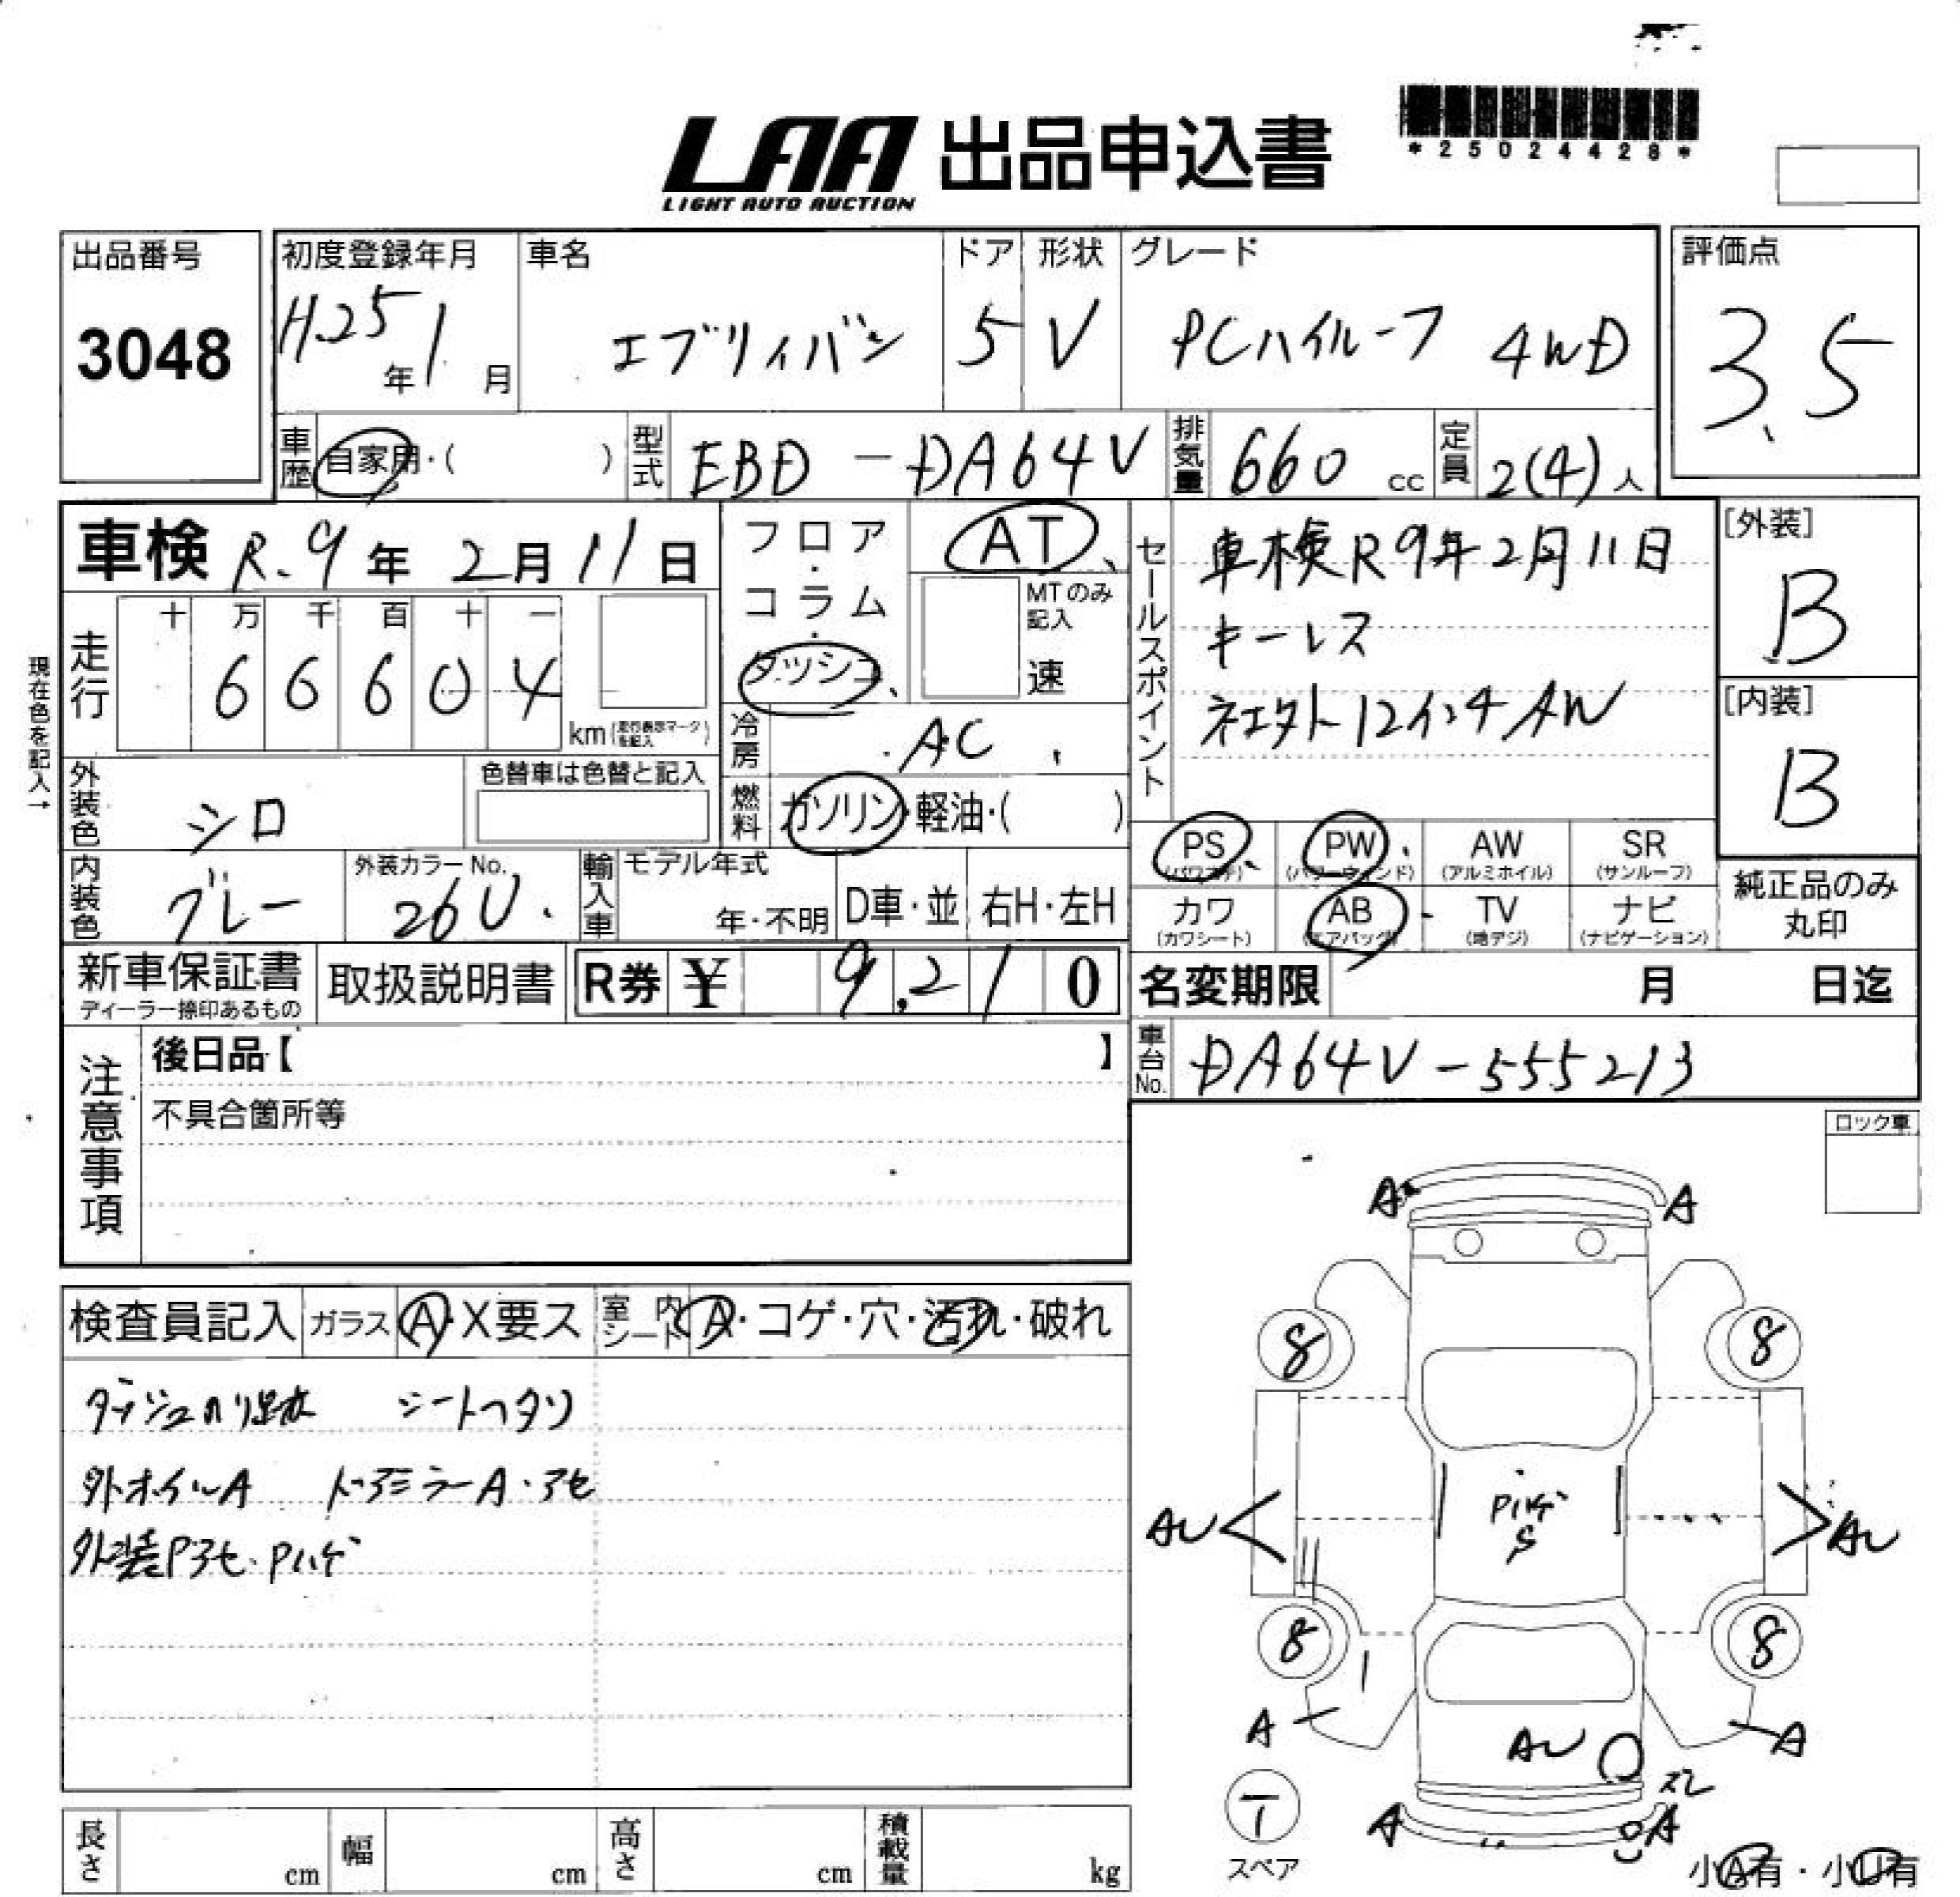 LAA 出品申込書
LIGHT AUTO AUCTION
*25024428*
出品番号
3048
初度登録年月
H.25年1月
車名
エブリィバン
ドア
5
形状
V
グレード
PCハイルーフ 4WD
評価点
3.5
車歴 自家用・( )
型式 EBD-DA64V
排気量 660 cc
定員 2(4)人
車検 R.9年2月11日
フロア・コラム・ダッシュ
AT
MTのみ記入
速
セールスポイント
車検R9年2月11日
キーレス
社外12インチAW
[外装]
B
[内装]
B
現在色を記入→
走行
十 万 千 百 十 一
6 6 6 0 4
km(走行表示マークを記入)
冷房 AC
燃料 ガソリン・軽油・( )
外装色 シロ
色替車は色替と記入
PS (パワステ)
PW (パワーウィンド)
AW (アルミホイル)
SR (サンルーフ)
カワ (カワシート)
AB (エアバッグ)
TV (地デジ)
ナビ (ナビゲーション)
純正品のみ丸印
内装色 グレー
外装カラーNo. 26U
輸入車
モデル年式
年・不明
D車・並
右H・左H
新車保証書
ディーラー捺印あるもの
取扱説明書
R券 ¥ 9,210
名変期限 月 日迄
車台No. DA64V-555213
注意事項
後日品【 】
不具合箇所等
ロック車
検査員記入
ガラス A・X要ス
室内シート A・コゲ・穴・汚れ・破れ
ダッシュノリ跡 シートヘタリ
外ホイルA ドアミラーA・アセ
外装Pアセ・Pハゲ
A A
8 8
AU PハゲS AU
8 8
A AU A
ズレ
A A
T
スペア
小A有・小U有
長さ cm
幅 cm
高さ cm
積載量 kg